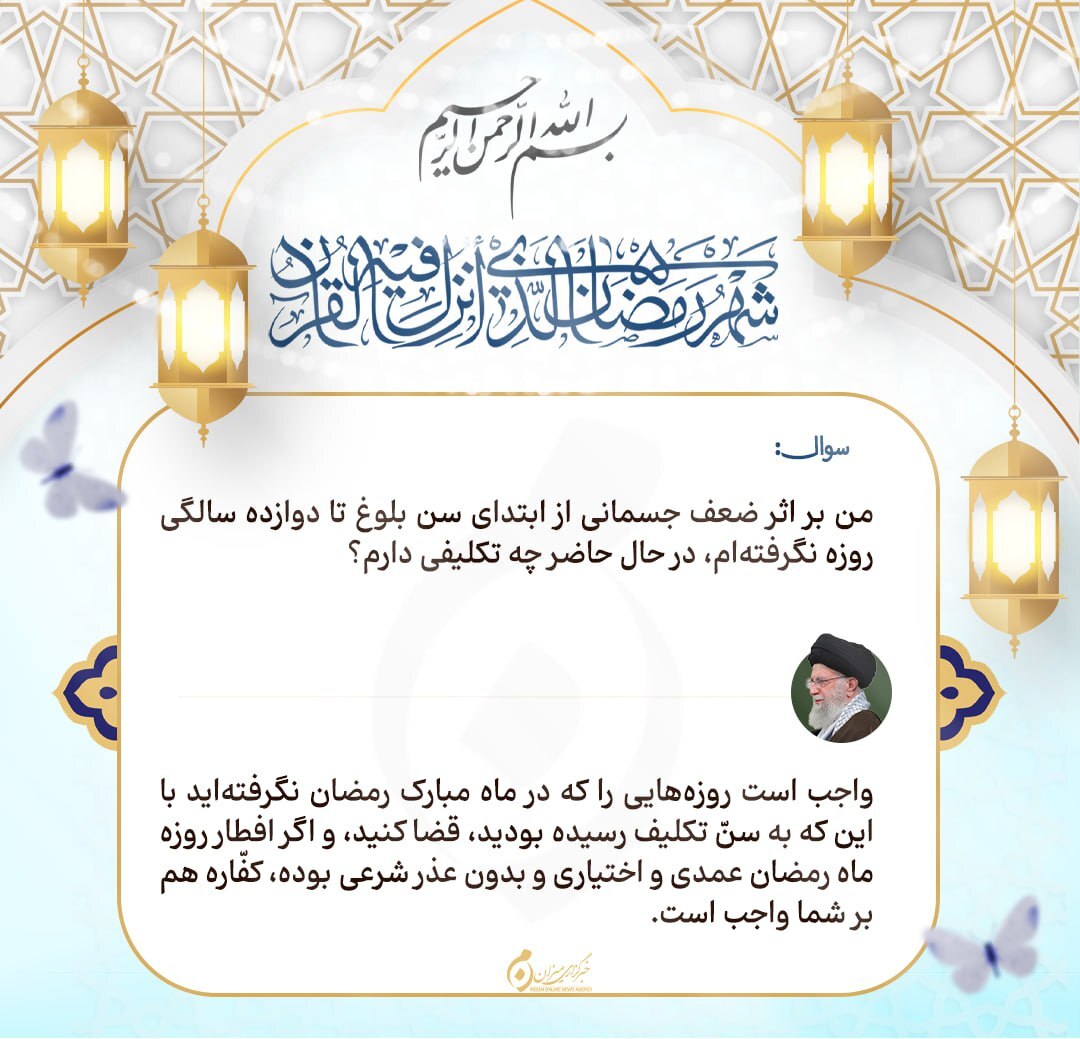 بسم الله الرحمن الرحیم
شهر رمضان الذی أنزل فیه القرآن
سوال:
من بر اثر ضعف جسمانی از ابتدای سن بلوغ تا دوازده سالگی
روزه نگرفته‌ام، در حال حاضر چه تکلیفی دارم؟
واجب است روزه‌هایی را که در ماه مبارک رمضان نگرفته‌اید با
این که به سنّ تکلیف رسیده بودید، قضا کنید، و اگر افطار روزه
ماه رمضان عمدی و اختیاری و بدون عذر شرعی بوده، کفّاره هم
بر شما واجب است.
خبرگزاری میزان
MIZAN ONLINE NEWS AGENCY